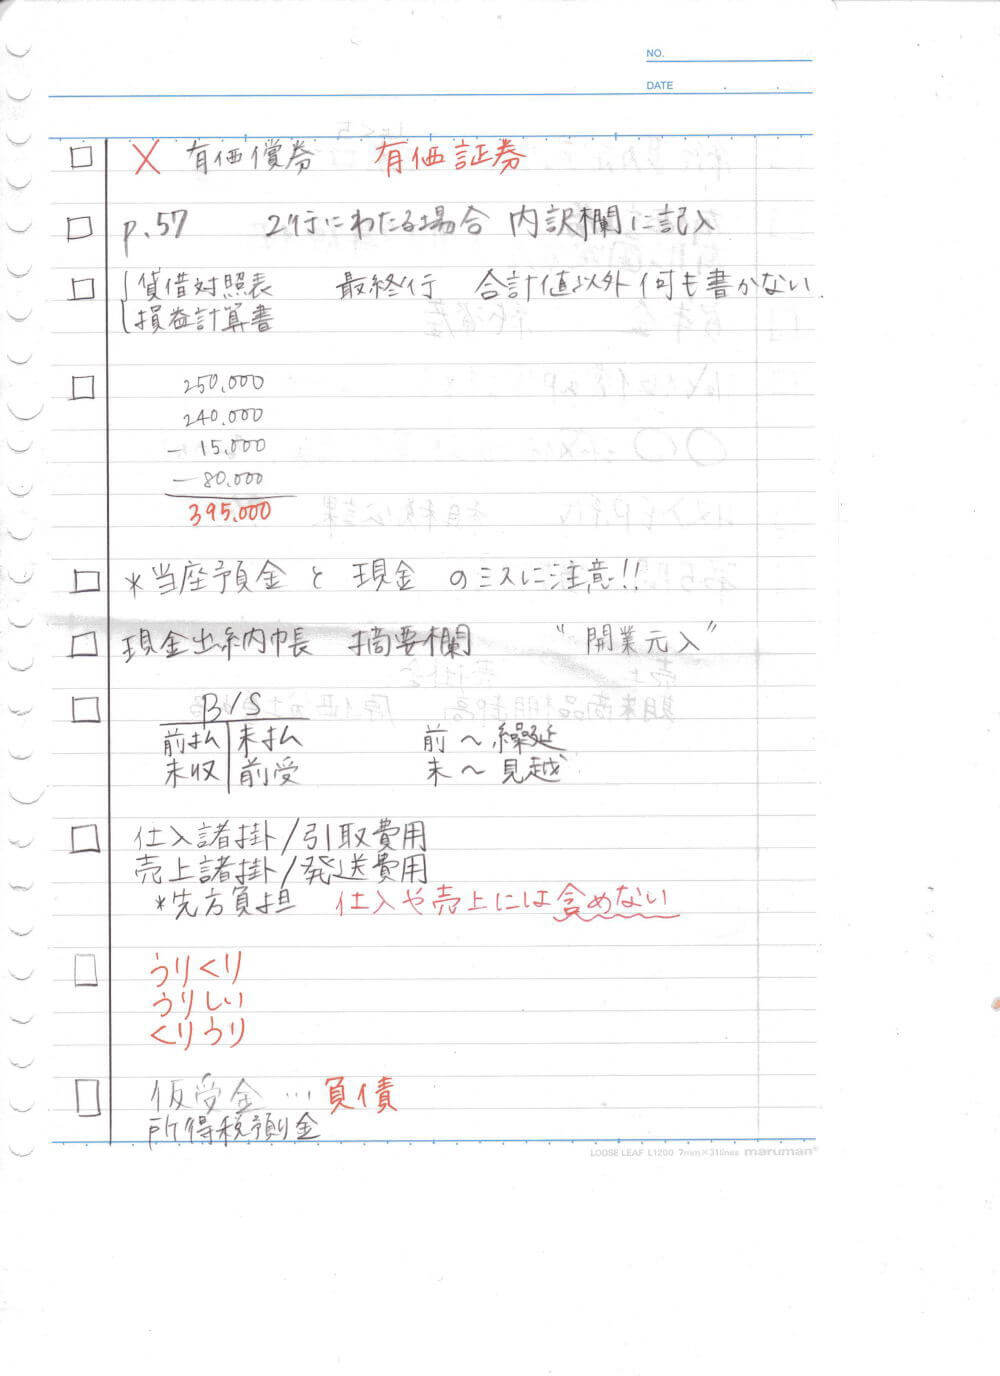 NO.
DATE
□ × 有価償券 有価証券
□ p.57 2行にわたる場合 内訳欄に記入
□ 貸借対照表 最終行 合計値以外何も書かない
損益計算書
□ 250,000
240,000
- 15,000
- 80,000
395,000
□ *当座預金と現金のミスに注意!!
□ 現金出納帳 摘要欄 "開業元入"
□ B/S
前払 未払 前〜繰延
未収 前受 未〜見越
□ 仕入諸掛/引取費用
売上諸掛/発送費用
*先方負担 仕入や売上には含めない
□ うりくり
うりしい
くりうり
□ 仮受金…負債
所得税預り金
LOOSE LEAF L1200 7mm×31lines maruman